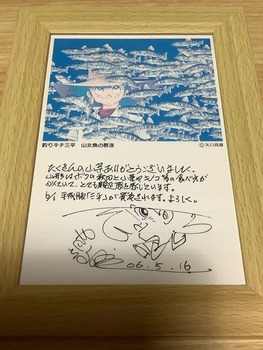 釣りキチ三平 山女魚の群泳
©矢口高雄
たくさんの山菜ありがとうございました。
山形はボクの秋田と山菜やキノコ等の食べ方が
似ていて、とても親近感を感じています。
平成版「三平」が発売されます。よろしく。
06.5.16